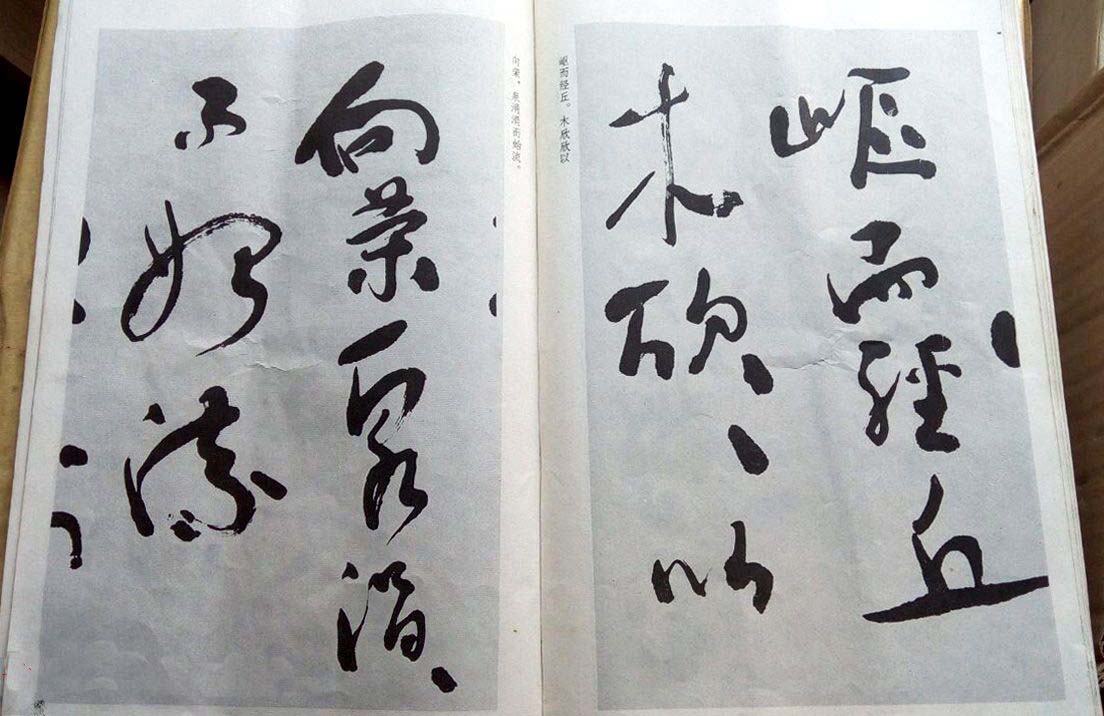 岖而经丘。木欣欣以
嶇而經丘
木欣、、以
向荣，泉涓涓而始流。
向榮泉涓、
而始流